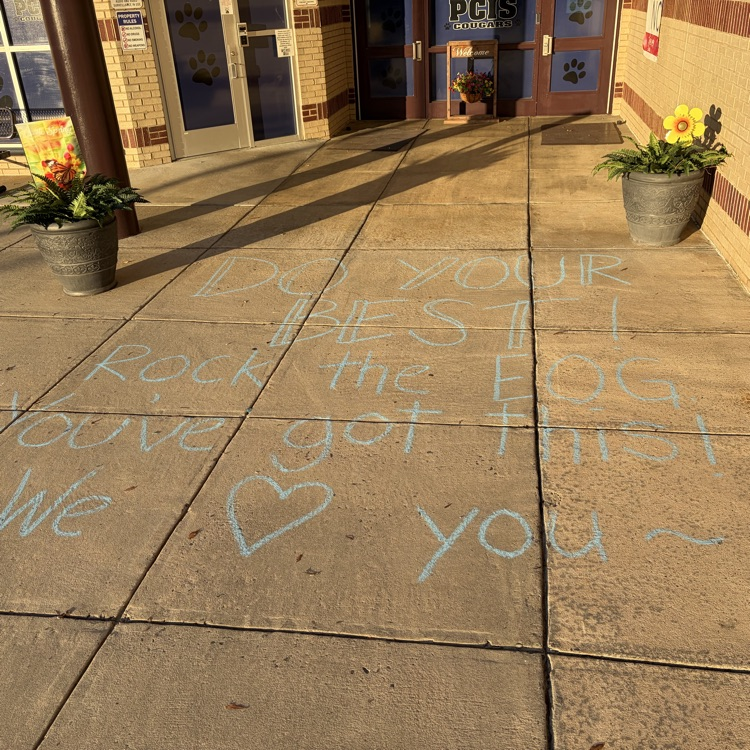 PROPERTY
RULES
PCIS
COUGARS
Welcome
DO YOUR
BEST!
Rock the EOG
You've got this!
We ♡ you ~